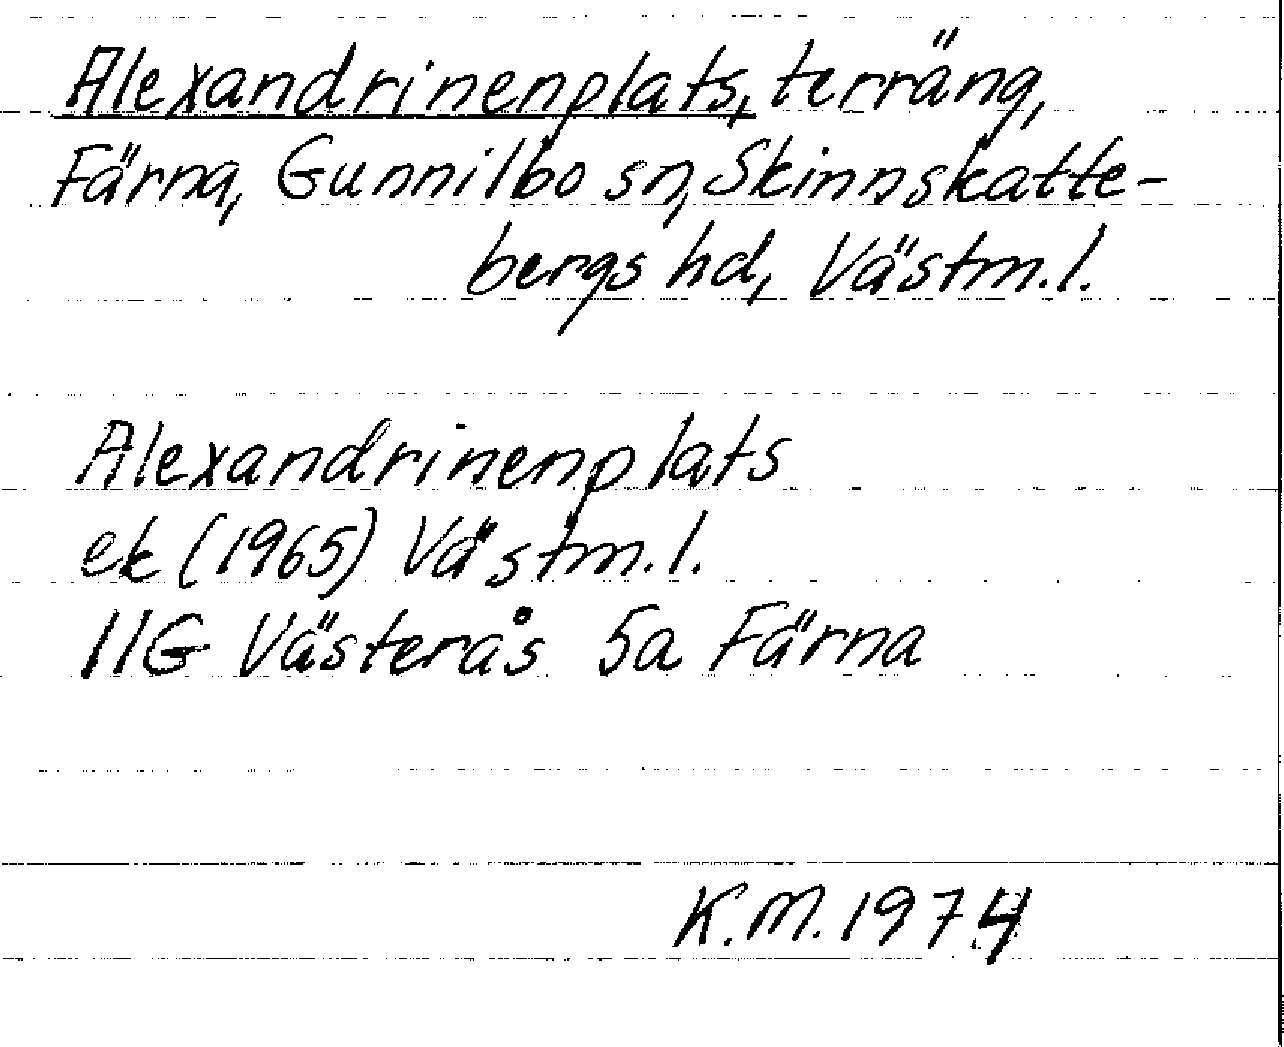 Alexandrinenplats, terräng,
Färna, Gunnilbo sn, Skinnskatte-
bergs hd, Västm.l.
Alexandrinenplats
ek (1965) Västm.l.
11G Västerås 5a Färna
K.M. 1974